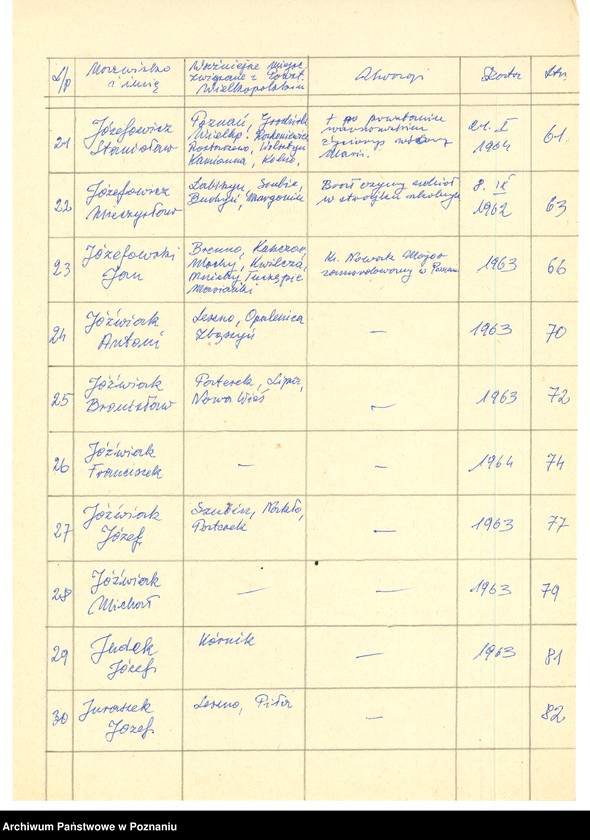 L/p Nazwisko i imię Ważniejsze miejsc. związane z Powst. Wielkopolskim Uwagi Data Str.
21 Józefowicz Stanisław Poznań, Grodzisk Wielkp. Rostarzewo, Wolsztyn Kamionna, Kolno, + po powstaniu 21. I 1964 61.
22 Józefowicz Mieczysław Łabiszyn, Szubin, Budzyń, Margonin Brał czynny udział w strajku szkolnym 8. IX 1962 63
23 Józefowski Jan Brenno, Kaszczor, Mochy, Kwilcz, Miały, Marianki Ks. Nowak zamordowany w Poznaniu 1963 66
24 Jóźwiak Antoni Leszno, Opalenica Zbąszyń — 1963 70
25 Jóźwiak Bronisław Parterek, Lipa, Nowa Wieś — 1963 72
26 Jóźwiak Franciszek — — 1964 74
27 Jóźwiak Józef Szubin, Nakło, Parterek — 1963 77
28 Jóźwiak Michał — — 1963 79
29 Judek Józef Kórnik — 1963 81
30 Juraszek Józef Leszno, Piła — 82
Archiwum Państwowe w Poznaniu